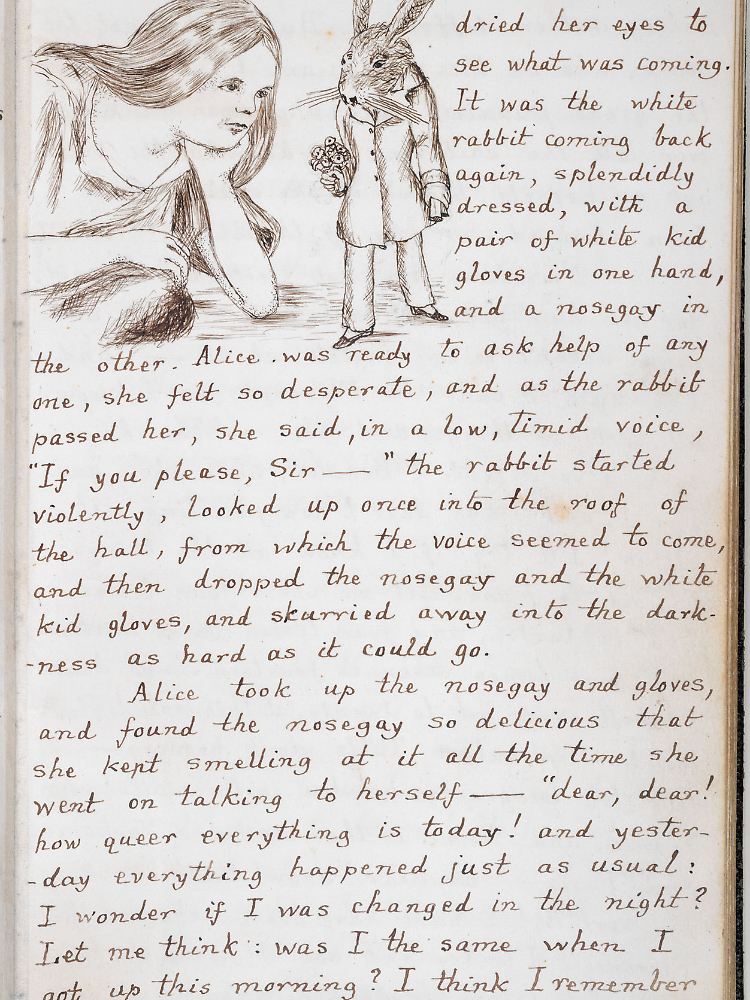 dried her eyes to
see what was coming.
It was the white
rabbit coming back
again, splendidly
dressed, with a
pair of white kid
gloves in one hand,
and a nosegay in
the other. Alice was ready to ask help of any
one, she felt so desperate, and as the rabbit
passed her, she said, in a low, timid voice,
"If you please, Sir—" the rabbit started
violently, looked up once into the roof of
the hall, from which the voice seemed to come,
and then dropped the nosegay and the white
kid gloves, and skurried away into the dark-
-ness as hard as it could go.
Alice took up the nosegay and gloves,
and found the nosegay so delicious that
she kept smelling at it all the time she
went on talking to herself— "dear, dear!
how queer everything is today! and yester-
-day everything happened just as usual:
I wonder if I was changed in the night?
Let me think: was I the same when I
got up this morning? I think I remember